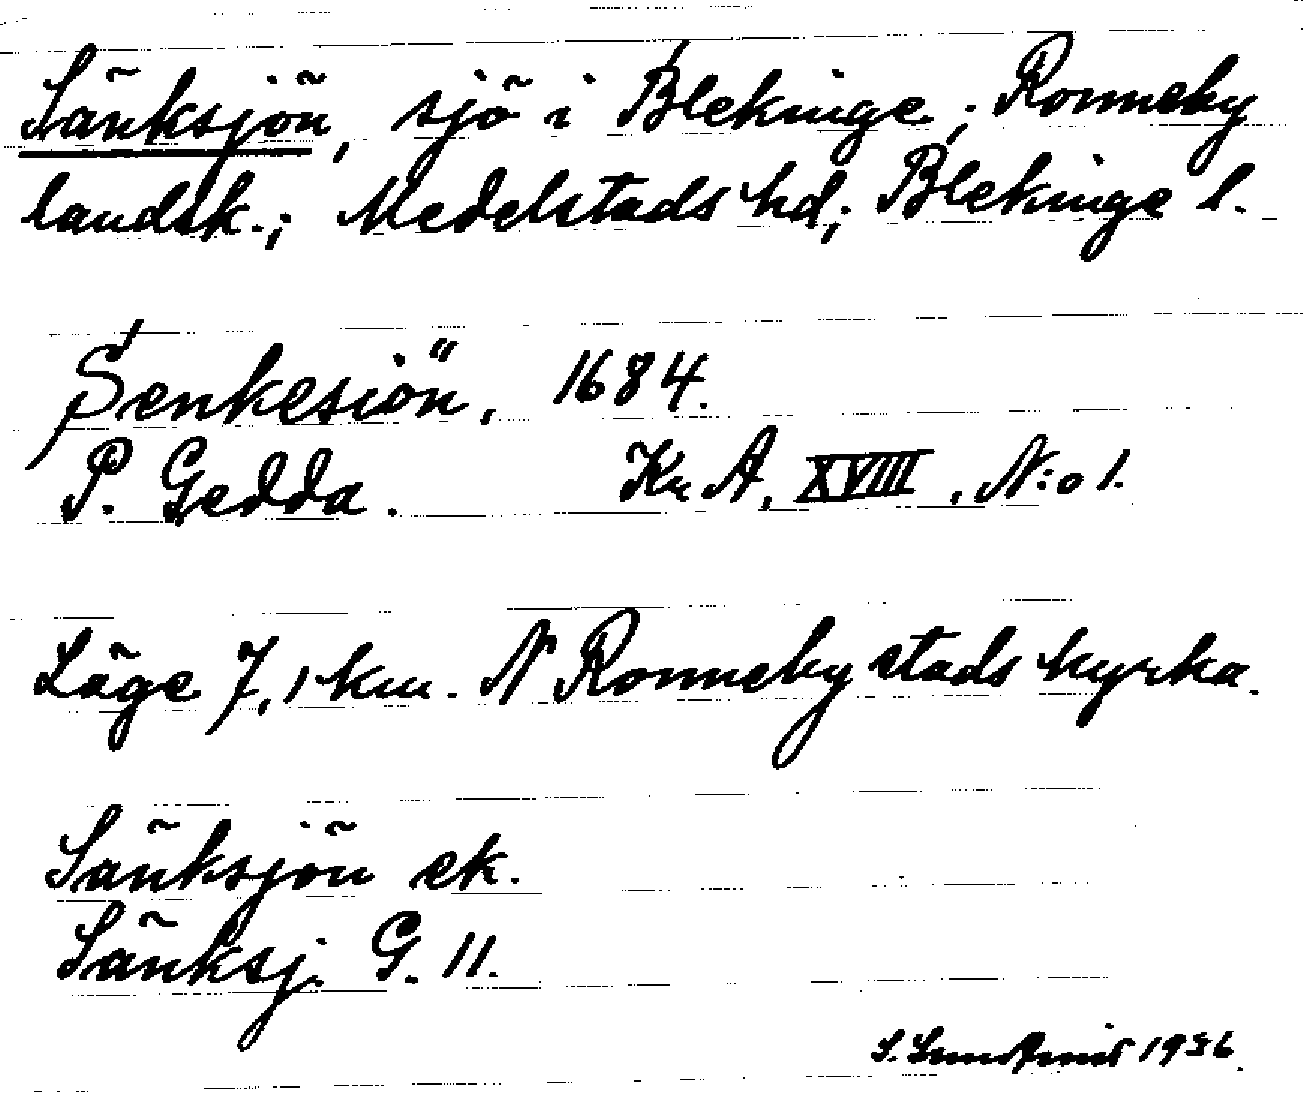 Sänksjön, sjö i Blekinge; Ronneby
landsk.; Medelstads hd; Blekinge l.
Senkesiön, 1684.
P. Gedda. Kr A, XVIII, N:o 1.
Läge 7,1 km. N Ronneby stads kyrka.
Sänksjön ek.
Sänksj. G. 11.
S. 1936.